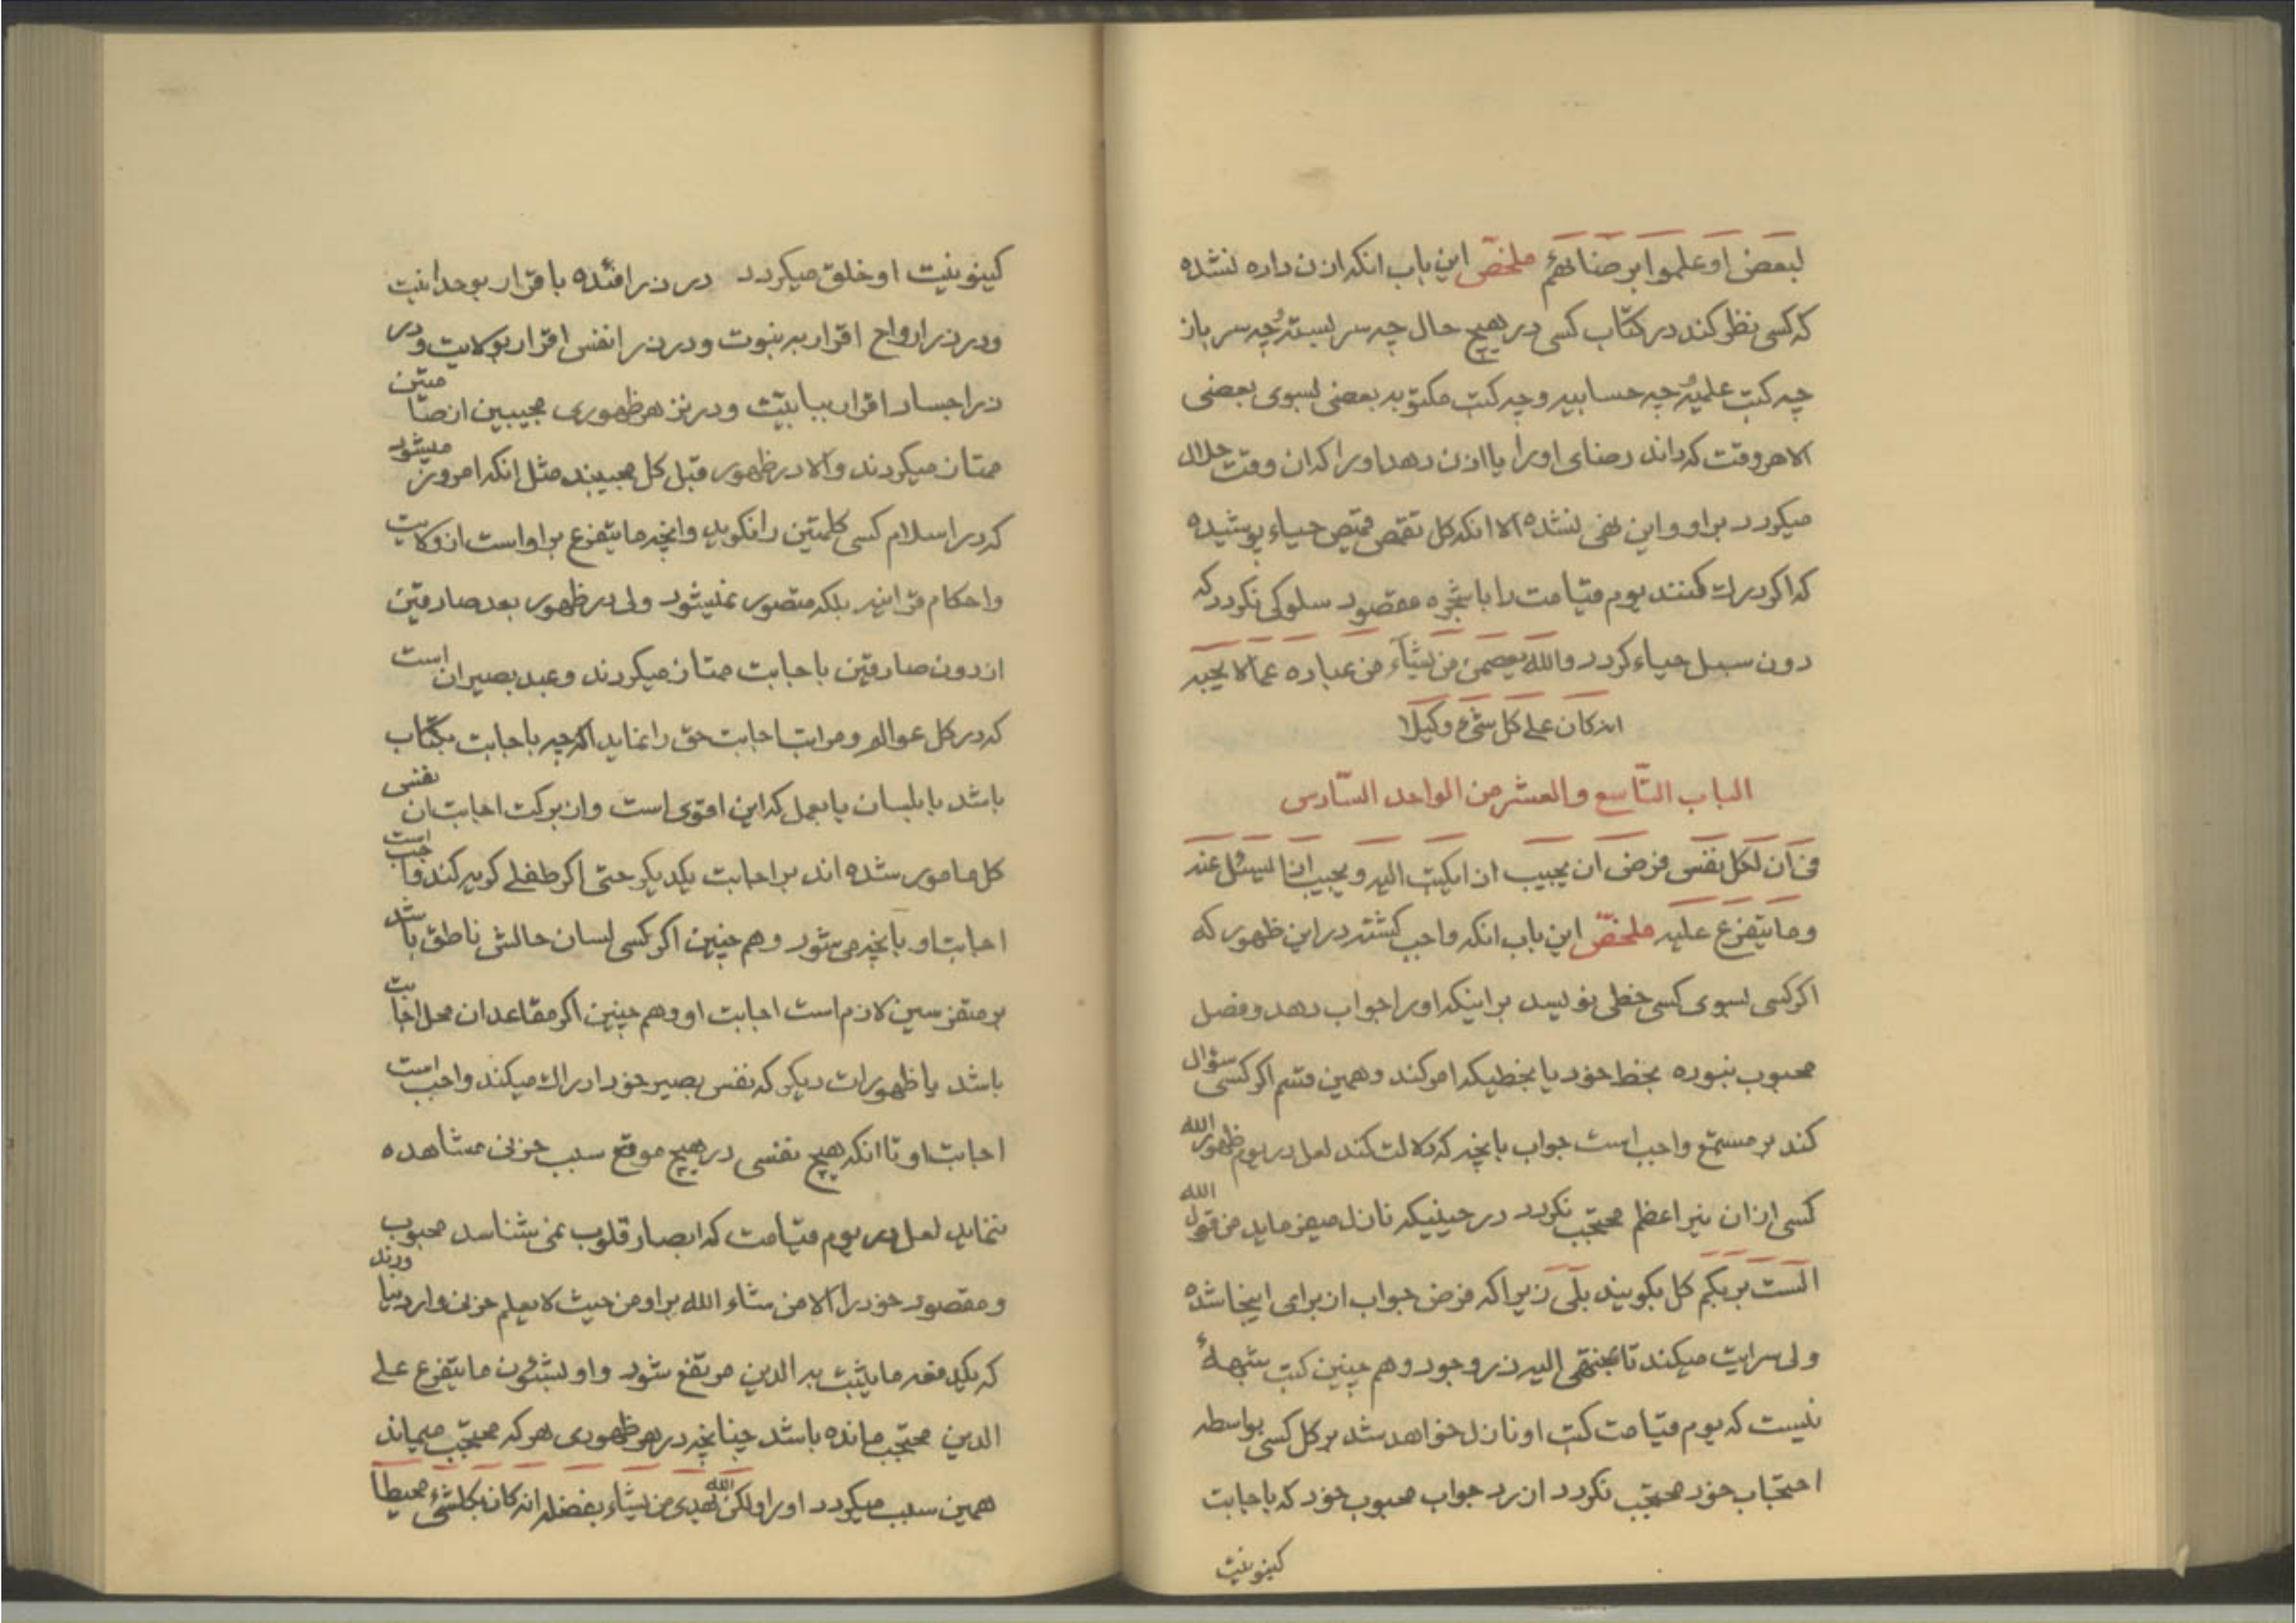 لبعض او علموا برضائهم ملخص این باب انکه اذن داده نشده
که کسی نظر کند در کتاب کسی در هیچ حال چه سر بسته و چه سر باز
چه کتب علمیه و چه حسابیه و چه کتب مکتوبه بعضی بسوی بعضی
الا هر وقت که داند رضای او را یا اذن دهد او را که ان وقت حلال
میگردد بر او و این نهی نشده الا انکه کل تقمص قمیص حیاء پوشیده
که اگر درك کنند یوم قیامت را با شجره مقصود سلوکی نگردد که
دون سبیل حیاء گردد والله یعصمن من یشاء من عباده عما لا یحبه
انه کان علی کل شیء وکیلا
الباب التاسع و العشر من الواحد السادس
فی ان لکل نفس فرض ان یجیب اذا یکتب الیه و یجیب اذا یسئل عنه
وما یتفرع علیه ملخص این باب انکه واجب گشته در این ظهور که
اگر کسی بسوی کسی خطی نویسد بر اینکه او را جواب دهد و فصل
محبوب نبوده بخط خود یا بخطیکه امر کند و همین قسم اگر کسی سؤال
کند بر مستمع واجب است جواب بانچه که دلالت کند لعل در یوم ظهور الله
کسی از ان نیر اعظم محتجب نگردد در حینیکه نازل میفرماید من قول الله
الست بربکم کل بگویند بلی زیرا که فرض جواب از برای اینجا شده
ولی سرایت میکند تا بمنتهی الیه ذر وجود و هم چنین کتب شبههٔ
نیست که یوم قیامت کتب او نازل خواهد شد بر کل کسی بواسطه
احتجاب خود محتجب نگردد از رد جواب محبوب خود که باجابت
کینونیت
کینونیت او خلق میگردد در ذر افئده باقرار بوحدانیت
و در ذر ارواح اقرار به نبوت و در ذر انفس اقرار بولایت و در
ذر اجساد اقرار ببابیت و در نزد هر ظهوری مجیبین از صامتین
ممتاز میگردند والا در ظهور قبل کل مجیبند مثل انکه امروز میشود
که در اسلام کسی کلمتین را نگوید وانچه ما یتفرع بر او است از ولایت
واحکام قرانیه بلکه متصور نمیشود ولی در ظهور بعد صادقین
از دون صادقین باجابت ممتاز میگردند وعبد بصیر ان است
که در کل عوالم و مراتب اجابت حق را نماید اگرچه باجابت بکتاب
باشد یا بلسان یا بعمل که این اقوی است واز برکت اجابت ان نفس
کل مامور شده اند بر اجابت یکدیگر حتی اگر طفلی گریه کند واجب است
اجابت او بانچه می شود وهم چنین اگر کسی لسان حالش ناطق باشد
بر متفرسین لازم است اجابت او وهم چنین اگر مقاعد ان محل اجابت
باشد یا ظهورات دیگر که نفس بصیر خود ادراك میکند واجب است
اجابت او تا انکه هیچ نفسی در هیچ موقع سبب حزنی مشاهده
ننماید لعل در یوم قیامت که ابصار قلوب نمی شناسد محبوب
ومقصود خود را الا من شاء الله بر او من حیث لا یعلم حزنی وارد نیاورند
که یکدفعه ما یثبت به الدین مرتفع شود واو بشئون ما یتفرع علی
الدین محتجب مانده باشد چنانچه در هر ظهوری هر که محتجب میماند
همین سبب میگردد او را ولکن الله یهدی من یشاء بفضله انه کان بکلشیء محیطا